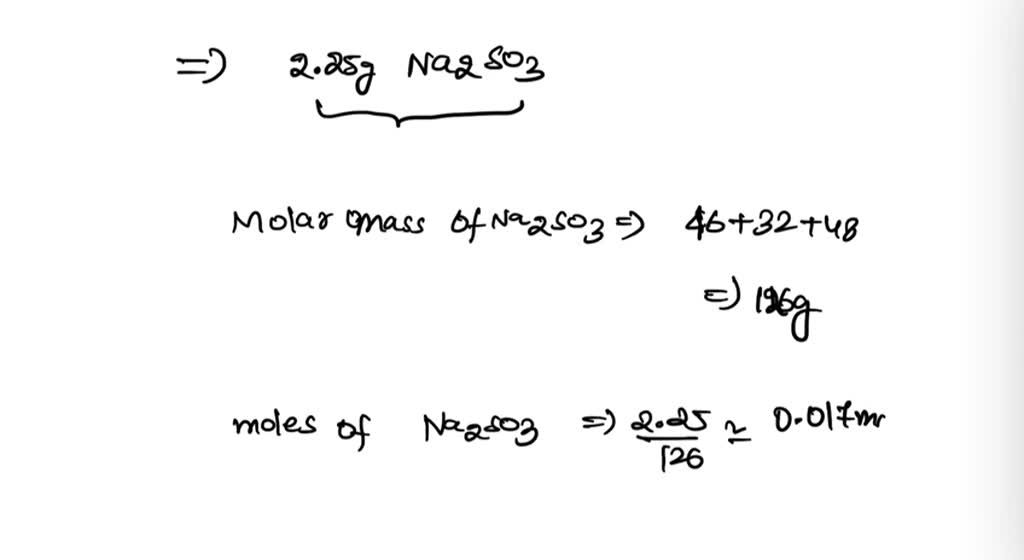 =) 2.25g Na2SO3
Molar mass of Na2SO3 =) 46+32+48
=) 126g
moles of Na2SO3 =) 2.25/126 ≃ 0.017m